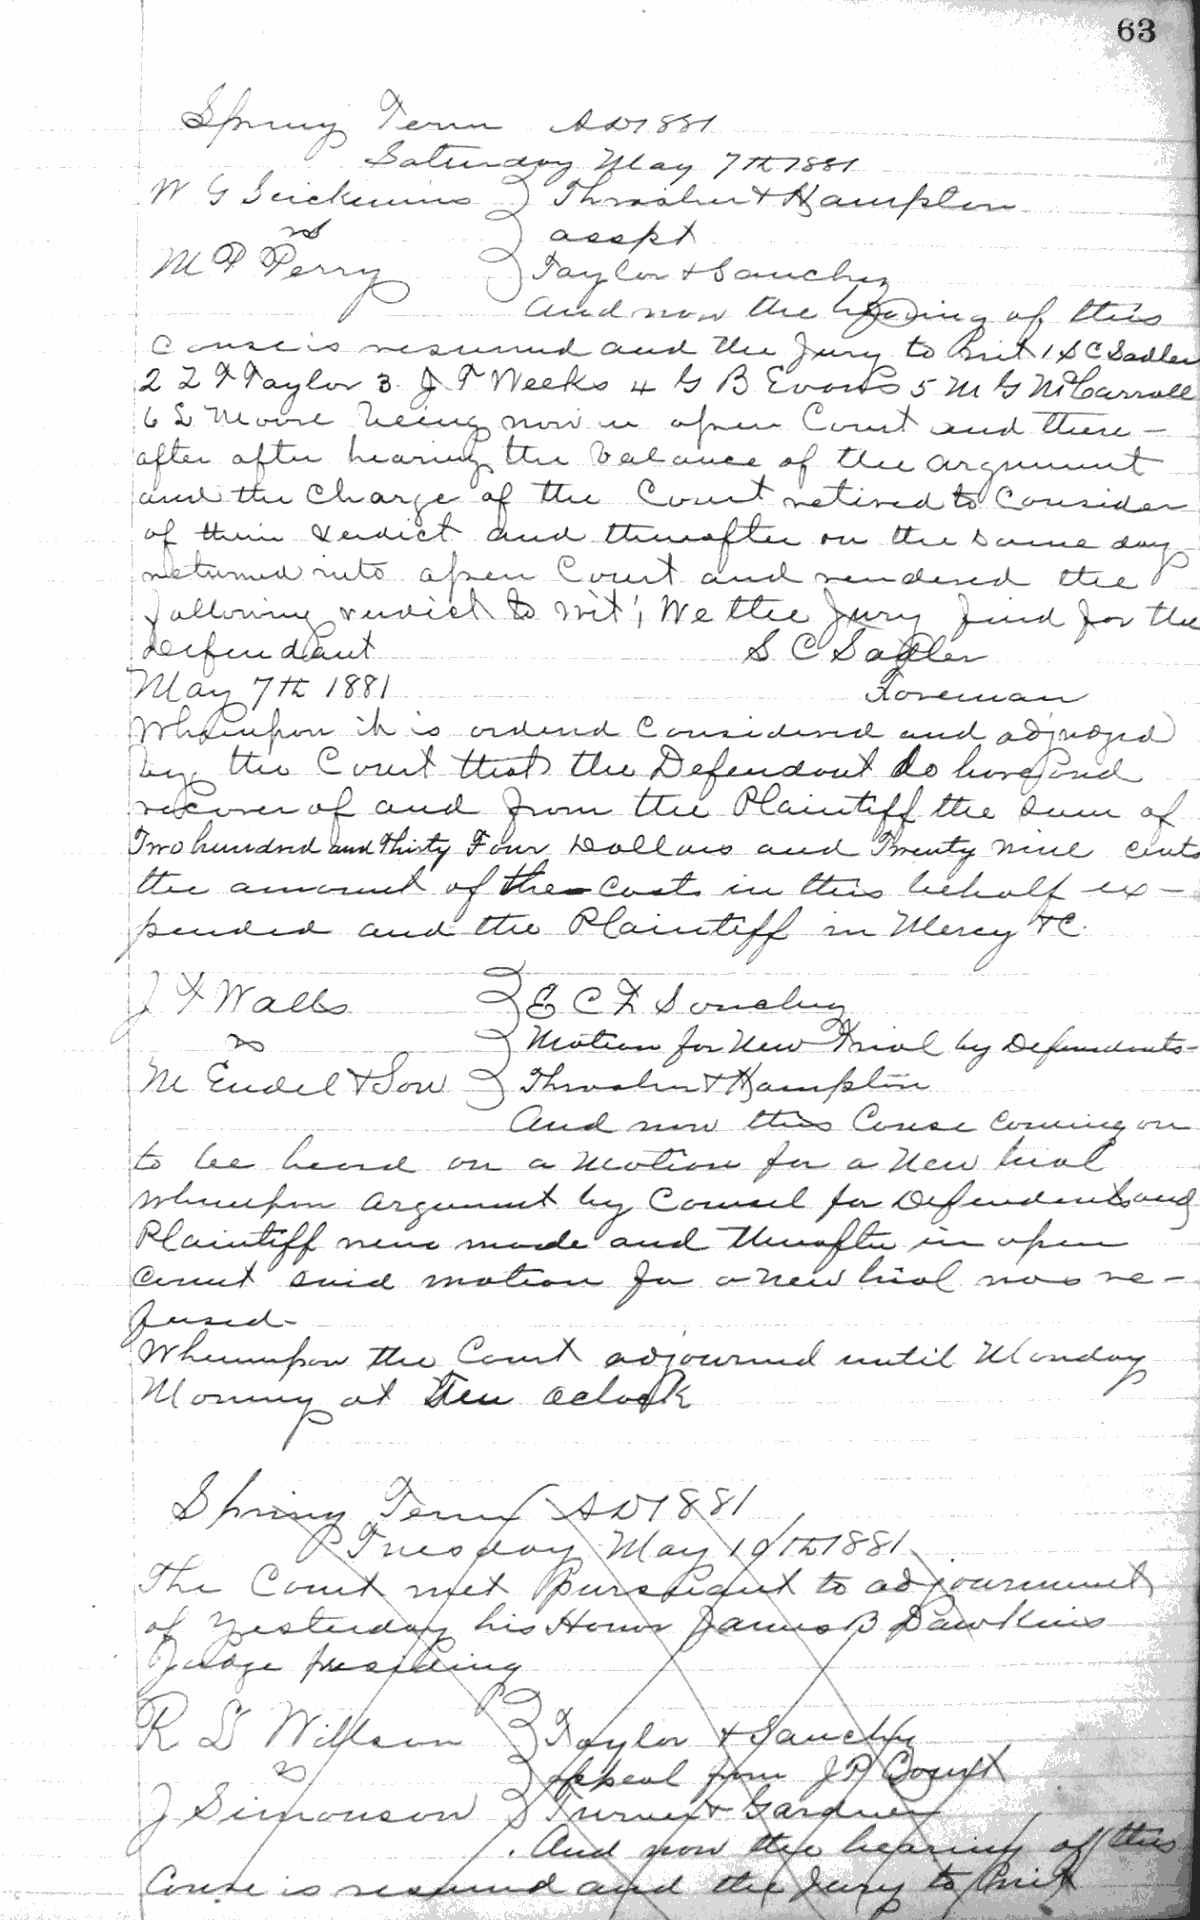 63
Spring Term AD 1881
Saturday May 7th 1881
W G Thrasher & Hampton
vs asspt
M P Perry Taylor & Sanchez
And now the hearing of this
Cause is resumed and the Jury to Wit 1 S C Sadler
2 Z T Taylor 3 J F Weeks 4 G B Evans 5 M G McCarrall
6 L Moore being now in open Court and there -
after after hearing the balance of the argument
and the Charge of the Court retired to Consider
of their Verdict and thereafter on the same day
returned into open Court and rendered the
following verdict to wit; We the Jury find for the
Defendant S C Sadler
May 7th 1881 Foreman
Whereupon it is ordered Considered and adjudged
by the Court that the Defendant do have and
recover of and from the Plaintiff the sum of
Two hundred and Thirty Four Dollars and Twenty nine cents
the amount of the Costs in this behalf ex -
pended and the Plaintiff in Mercy &C.
J F Walls E C F Sanchez
vs Motion for New Trial by Defendants -
M Endel & Son Thrasher & Hampton
And now this Cause coming on
to be heard on a Motion for a New trial
whereupon Argument by Counsel for Defendants and
Plaintiff were made and thereafter in open
Court said motion for a new trial was re -
fused -
Whereupon the Court adjourned until Monday
Morning at Ten Oclock
Spring Term AD 1881
Tuesday May 10th 1881
The Court met pursuant to adjournment
of Yesterday his Honor James B Dawkins
Judge presiding
R S Willson Taylor & Sanchez
vs appeal from J P Court
J Simonson Turner & Gardner
And now the hearing of this
Cause is resumed and the Jury to Wit